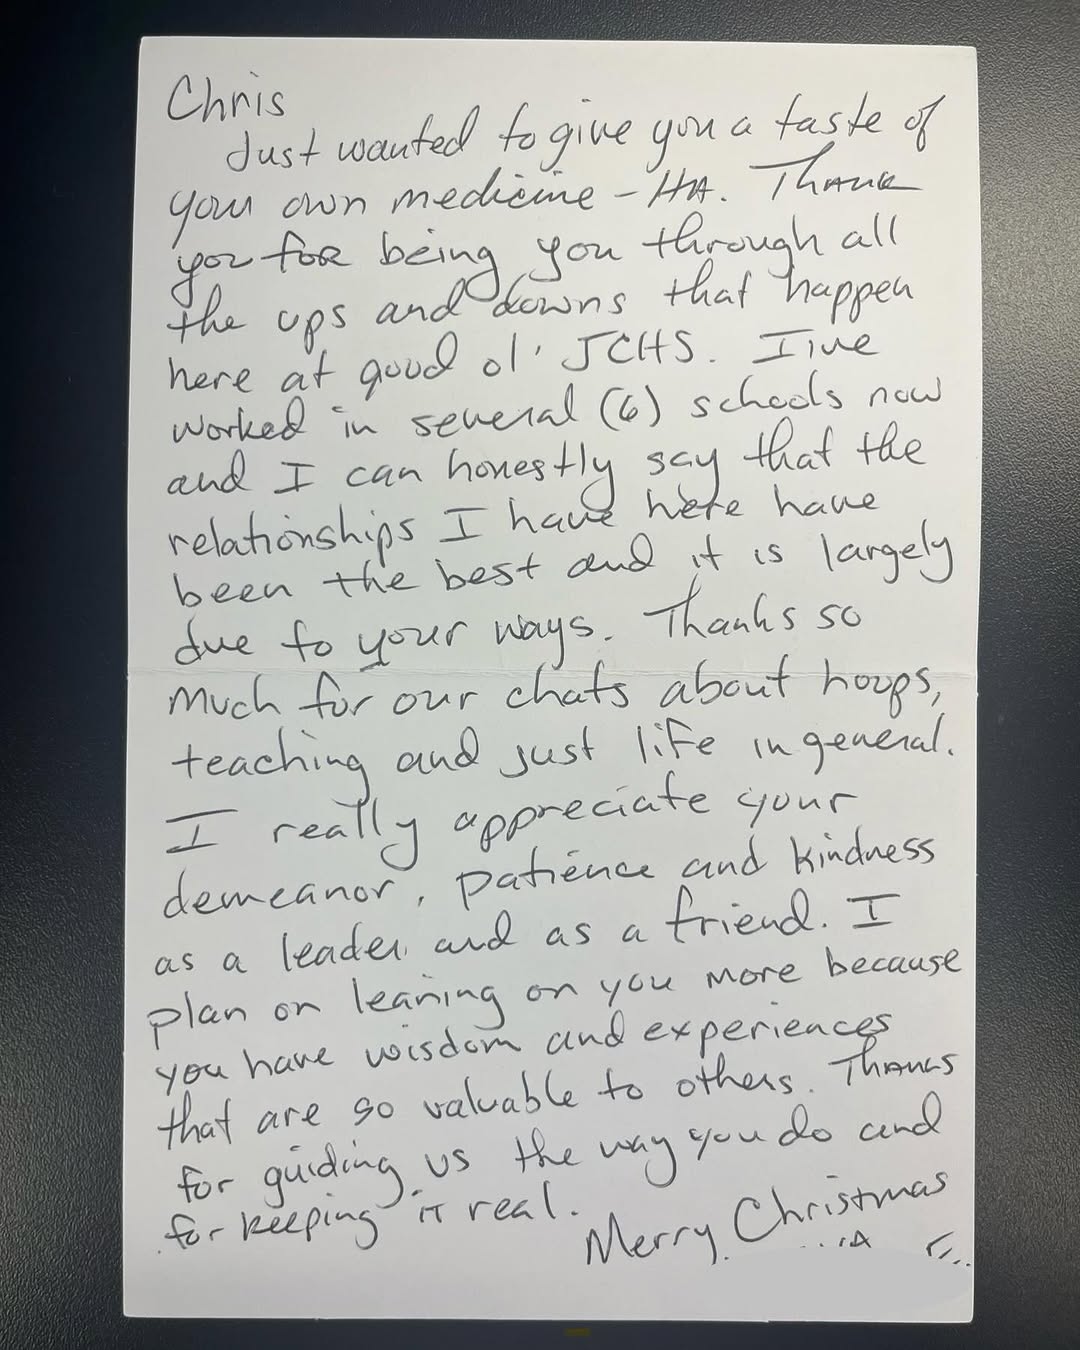 Chris
Just wanted to give you a taste of
your own medicine - HA. Thank
you for being you through all
the ups and downs that happen
here at good ol' JCHS. I've
worked in several (6) schools now
and I can honestly say that the
relationships I have here have
been the best and it is largely
due to your ways. Thanks so
much for our chats about hoops,
teaching and just life in general.
I really appreciate your
demeanor, patience and kindness
as a leader and as a friend. I
plan on leaning on you more because
you have wisdom and experiences
that are so valuable to others. Thanks
for guiding us the way you do and
for keeping it real.
Merry Christmas